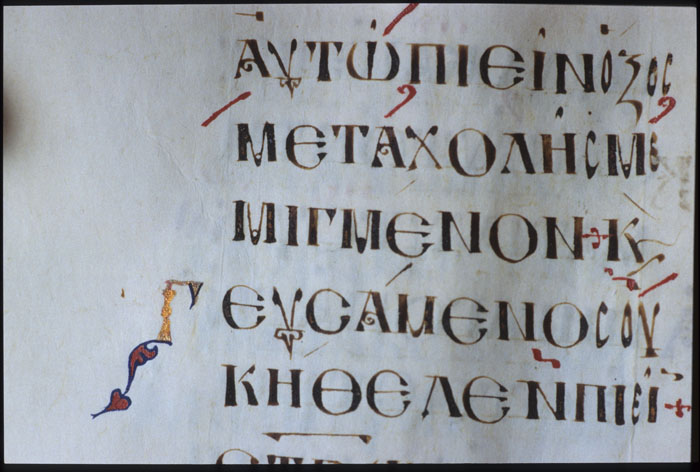 ΑΥΤΩ ΠΙΕΙΝ ΟΞΟΣ
ΜΕΤΑ ΧΟΛΗΣ ΜΕ
ΜΙΓΜΕΝΟΝ + Κ
ΓΕΥΣΑΜΕΝΟΣ ΟΥ
Κ ΗΘΕΛΕΝ ΠΙΕΙ +